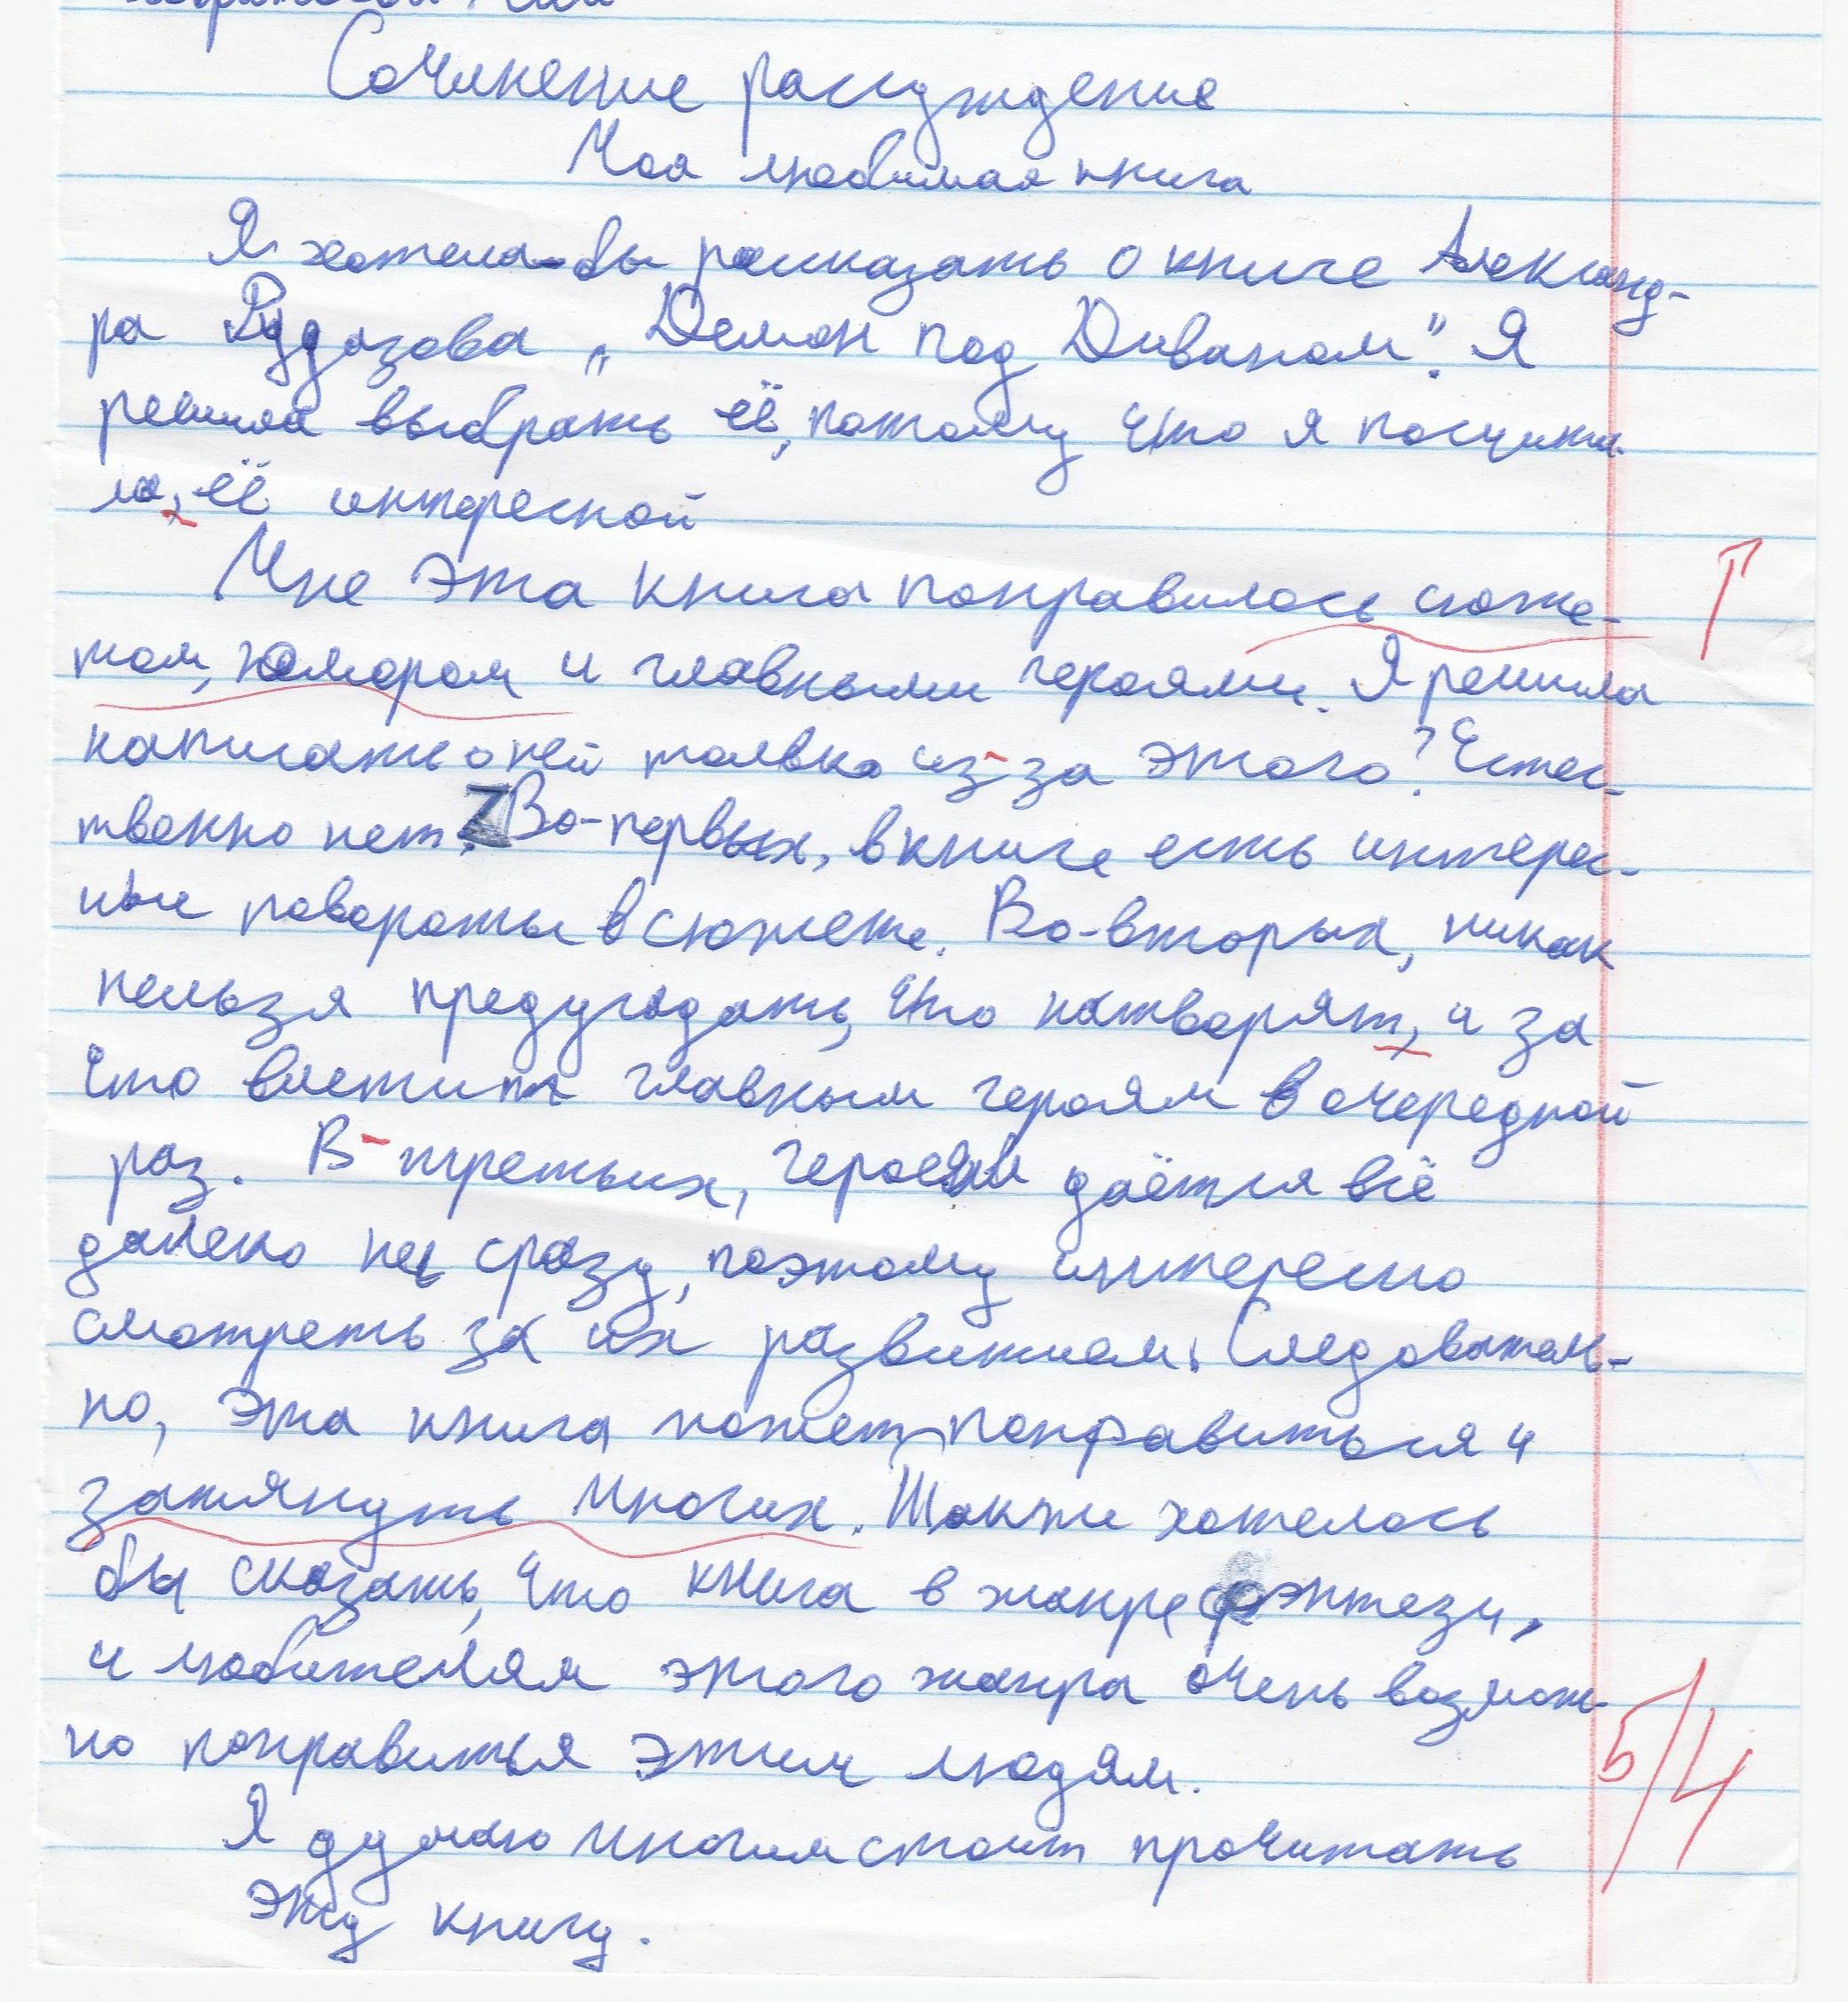 Сочинение рассуждение
Моя любимая книга
Я хотела-бы рассказать о книге Александ-
ра Рудазова „Демон под Диваном". Я
решила выбрать её, потому что я посчита-
ла, её интересной
Мне эта книга понравилось сюже-
том, юмором и главными героями. Я решила
написать о ней только из-за этого? Естес-
твенно нет. Z Во-первых, в книге есть интерес-
ные повороты в сюжете. Во-вторых, никак
нельзя предугадать, что натворят, и за
что влетит главным героям в очередной
раз. В-третьих, героям даётся всё
далеко не сразу, поэтому интересно
смотреть за их развитием. Следователь-
но, эта книга может понравиться и
затянуть многих. Также хотелось
бы сказать, что книга в жанре фэнтези,
и любителям этого жанра очень возмож-
но понравится этим людям.
Я думаю многим стоит прочитать
эту книгу.
Г
5/4